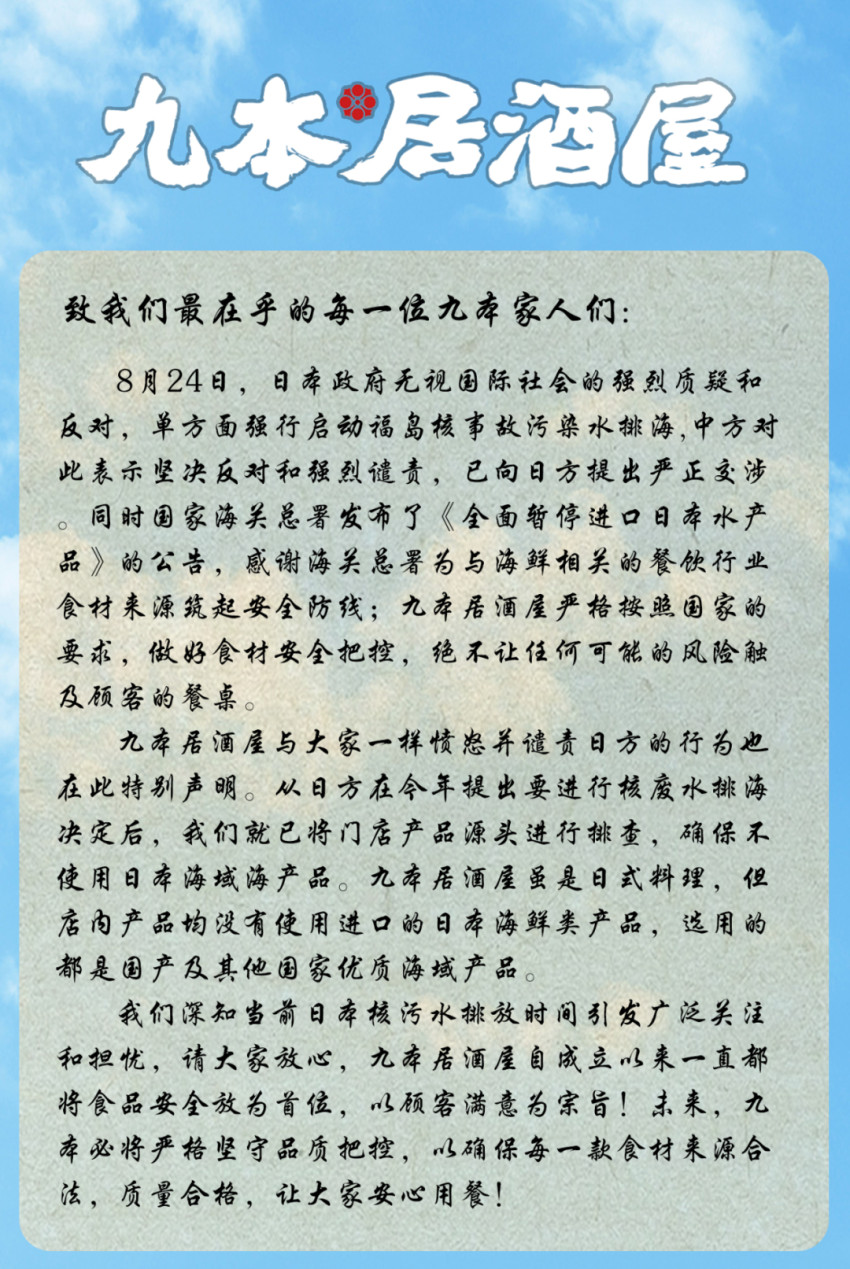 九本居酒屋
致我们最在乎的每一位九本家人们：
8月24日，日本政府无视国际社会的强烈质疑和
反对，单方面强行启动福岛核事故污染水排海,中方对
此表示坚决反对和强烈谴责，已向日方提出严正交涉
。同时国家海关总署发布了《全面暂停进口日本水产
品》的公告，感谢海关总署为与海鲜相关的餐饮行业
食材来源筑起安全防线；九本居酒屋严格按照国家的
要求，做好食材安全把控，绝不让任何可能的风险触
及顾客的餐桌。
九本居酒屋与大家一样愤怒并谴责日方的行为也
在此特别声明。从日方在今年提出要进行核废水排海
决定后，我们就已将门店产品源头进行排查，确保不
使用日本海域海产品。九本居酒屋虽是日式料理，但
店内产品均没有使用进口的日本海鲜类产品，选用的
都是国产及其他国家优质海域产品。
我们深知当前日本核污水排放时间引发广泛关注
和担忧，请大家放心，九本居酒屋自成立以来一直都
将食品安全放为首位，以顾客满意为宗旨！未来，九
本必将严格坚守品质把控，以确保每一款食材来源合
法，质量合格，让大家安心用餐！